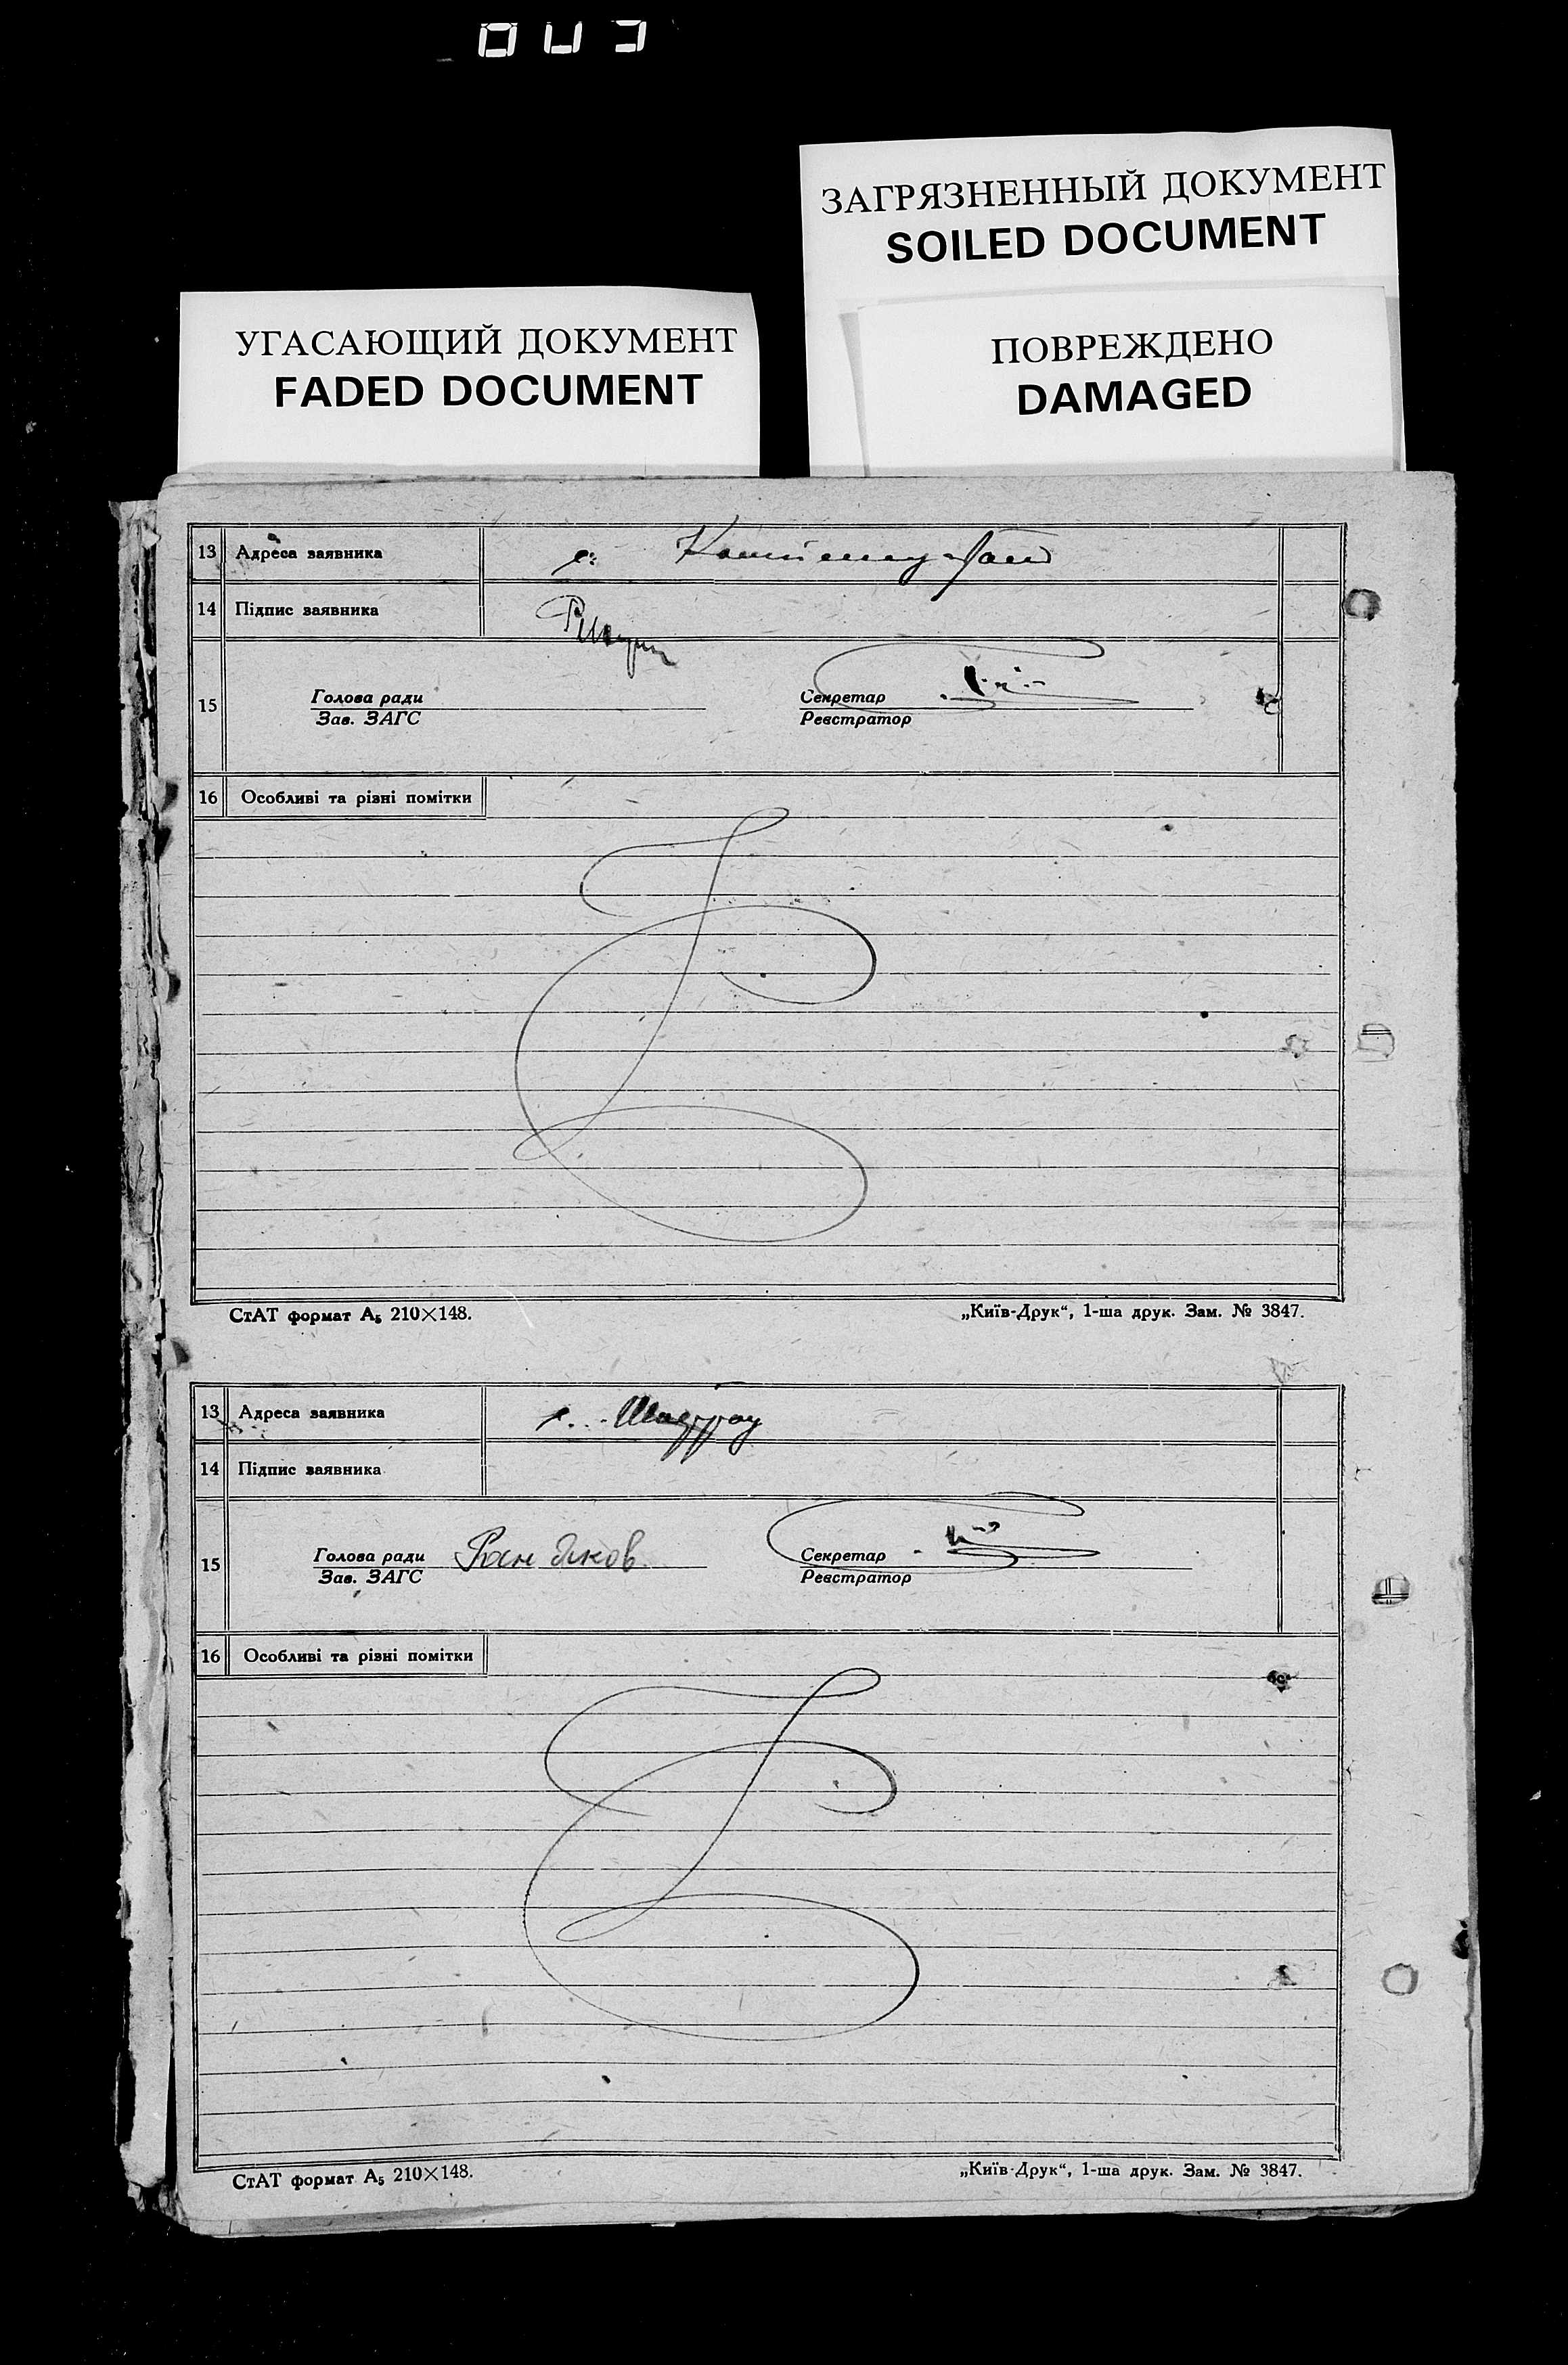 ЗАГРЯЗНЕННЫЙ ДОКУМЕНТ
SOILED DOCUMENT
УГАСАЮЩИЙ ДОКУМЕНТ
FADED DOCUMENT
ПОВРЕЖДЕНО
DAMAGED
13 Адреса заявника с.
14 Підпис заявника
15 Голова ради Секретар
Зав. ЗАГС Реєстратор
16 Особливі та різні помітки
СтАТ формат А₅ 210×148. „Київ-Друк“, 1-ша друк. Зам. № 3847.
13 Адреса заявника с.
14 Підпис заявника
15 Голова ради Секретар
Зав. ЗАГС Реєстратор
16 Особливі та різні помітки
СтАТ формат А₅ 210×148. „Київ-Друк“, 1-ша друк. Зам. № 3847.